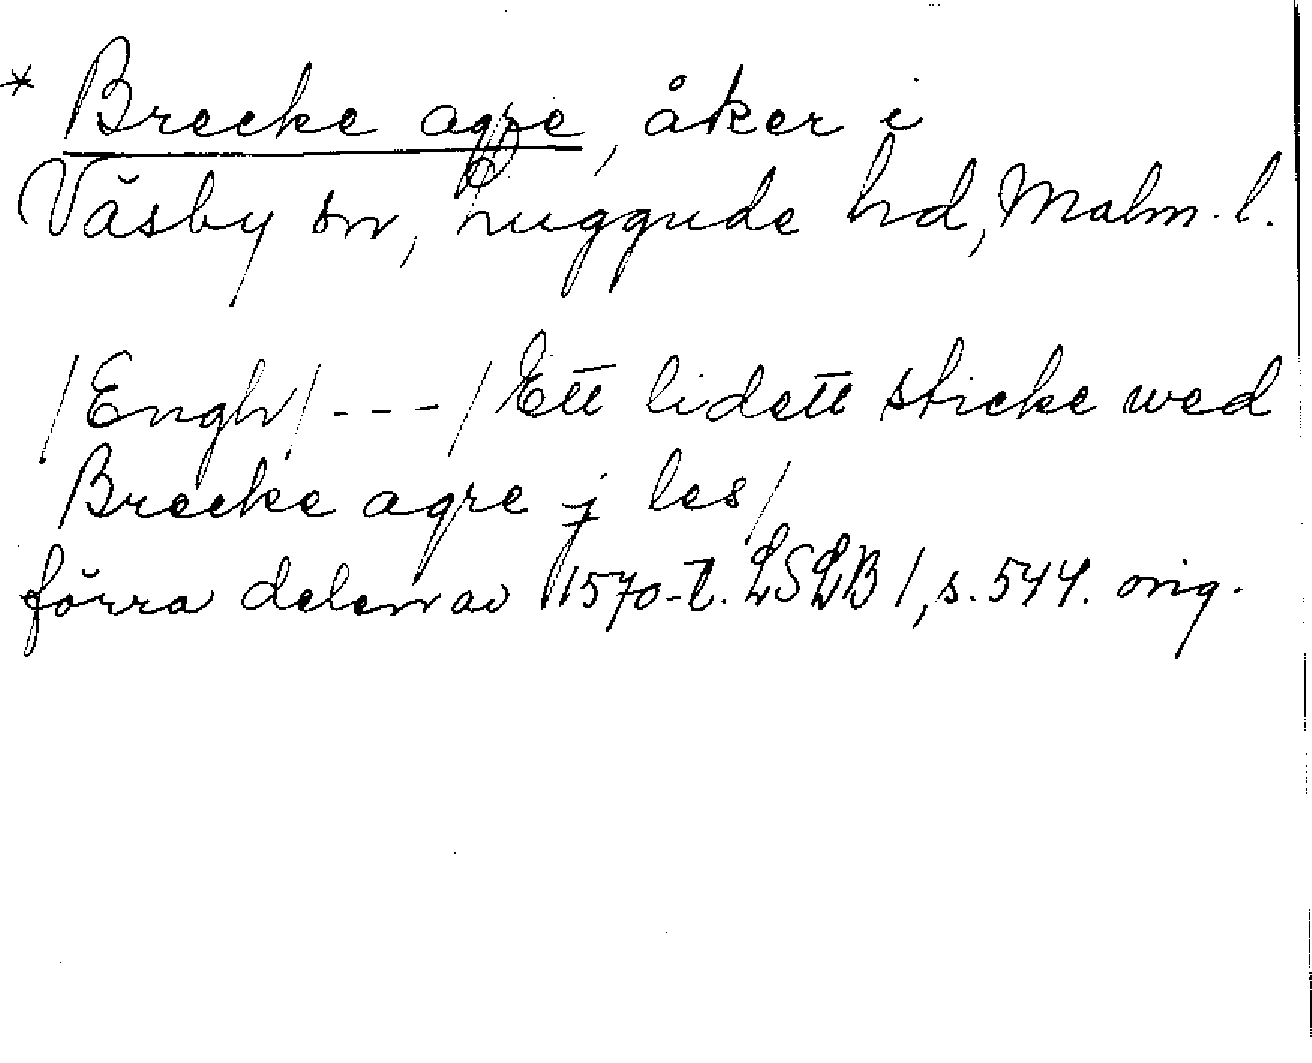 * Brecke agre, åker i
Väsby sn, Luggude hd, Malm. l.
/Engh/---/Ett lidett sticke wed
Brecke agre j les/
förra delen av 1570-t. LSLB I, s. 544. orig.